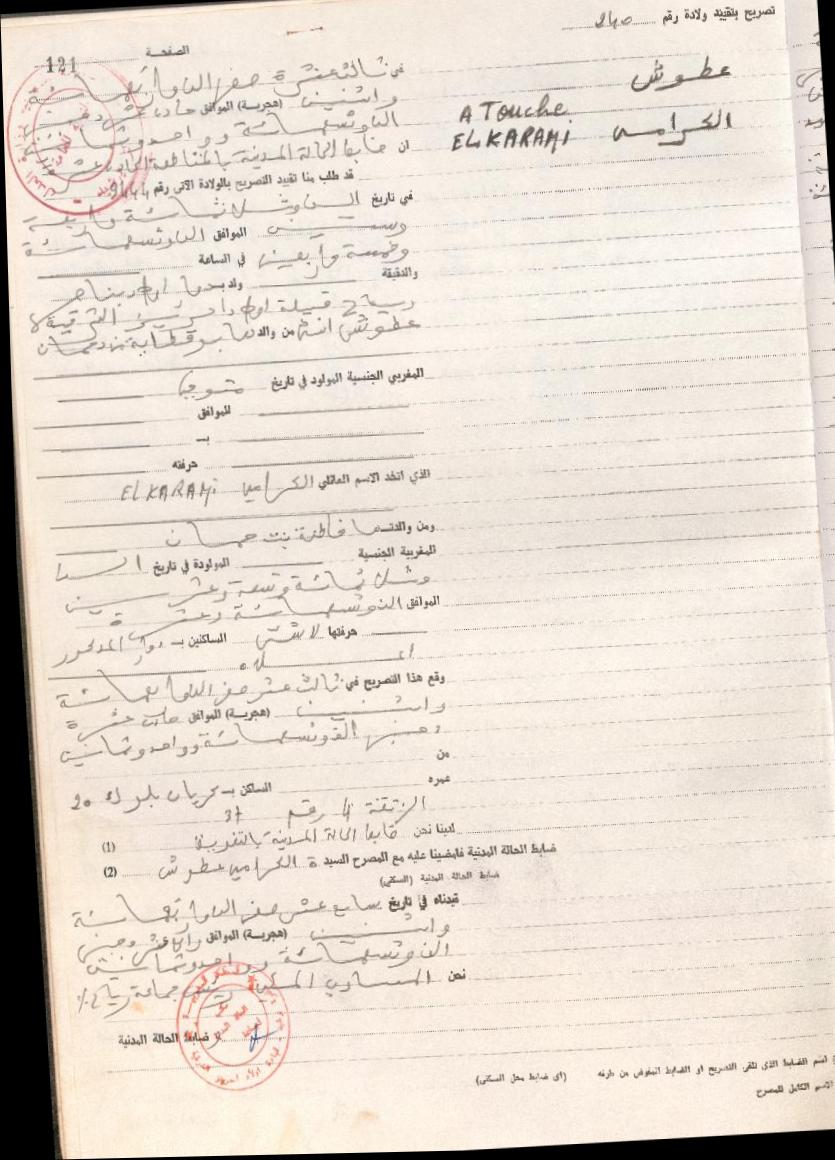 تصريح بتقييد ولادة رقم 240
الصفحة 121
عطوش
الكرامي
A Touche
EL KARAMI
في ثالث عشرة صفر الف واربعمائة
واثنين (هجرية) الموافق حادي عشر دجنبر
الف وتسعمائة وواحد وثمانين
ان ضابط الحالة المدنية بالمقاطعة الحادي عشر
قد طلب منا تقييد التصريح بالولادة الاتى رقم 9444
في تاريخ الف وثلاثمائة واربعة
وستين الموافق الف وتسعمائة
وخمسة واربعين في الساعة
والدقيقة ولد بدوار اولاد
رياح قبيلة اولاد احريز الشرقية
عطوش انثى من والدها بوقطاية بن دحمان
المغربي الجنسية المولود في تاريخ متوفى
الموافق
بـ
حرفته
الذي اتخد الاسم العائلي الكرامي EL KARAMI
ومن والدتـها فاطنة بنت حمان
المغربية الجنسية المولودة في تاريخ الف
وثلاثمائة وتسعة وعشرين
الموافق الف وتسعمائة وعشرة
حرفتها لا شئ الساكنين بـ دوار المذكور
اعلاه
وقع هذا التصريح في ثالث عشر صفر الف واربعمائة
واثنين (هجرية) الموافق حادي عشرة
دجنبر الف وتسعمائة وواحد وثمانين
من
عمره الساكن بـ كريان بلوك 20
الزنقة 4 رقم 37
لدينا نحن ضابط الحالة المدنية بالتفويض (1)
ضابط الحالة المدنية فامضينا عليه مع المصرح السيد ة الكرامي عطوش (2)
ضابط الحالة المدنية (السكنى)
قيدناه في تاريخ سابع عشر صفر الف واربعمائة
واثنين (هجرية) الموافق رابع عشر دجنبر
الف وتسعمائة وواحد وثمانين
نحن العيساوي المسكيني رئيس جماعة رياح
ضابط الحالة المدنية
اسم الضابط الذي تلقى التصريح او الضابط المفوض من طرفه (اى ضابط محل السكنى)
الاسم الكامل للمصرح